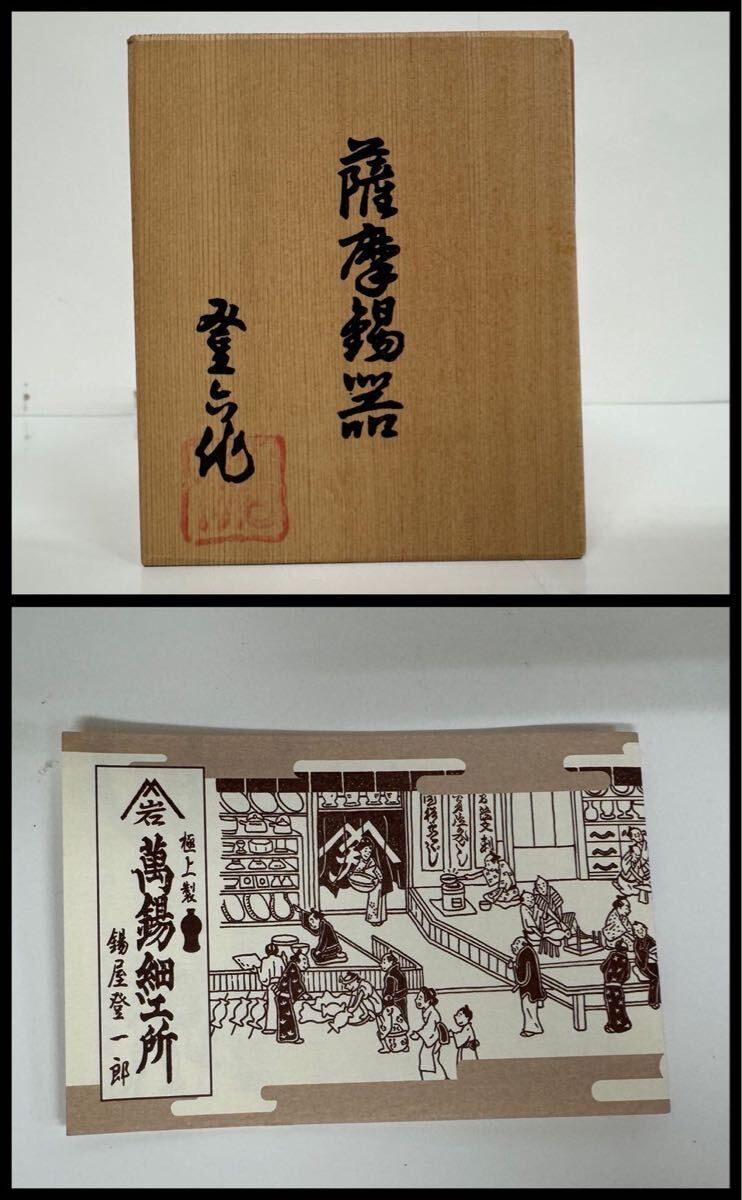 薩摩錫器
登六作
岩
極上製
萬錫細工所
錫屋登一郎